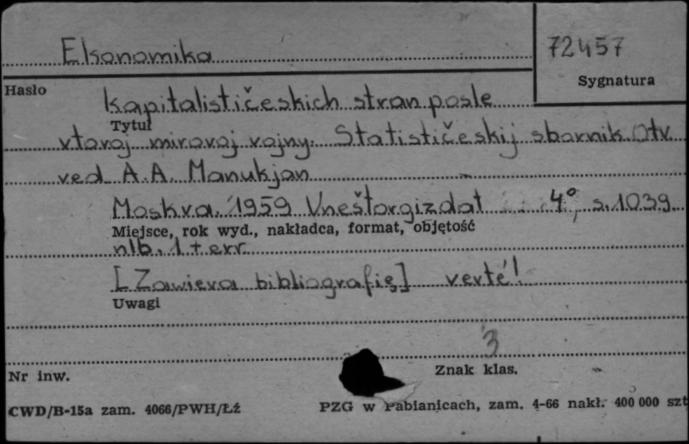 Ekonomika
72457
Sygnatura
Hasło
kapitalističeskich stran posle
Tytuł
vtoroj mirovoj vojny. Statističeskij sbornik Otv
red A.A. Manukjan
Moskva 1959 Vneštorgizdat 4°, s. 1039
Miejsce, rok wyd., nakładca, format, objętość
nlb. 1 + err
[Zawiera bibliografię] verte!
Uwagi
3
Nr inw.
Znak klas.
CWD/B-15a zam. 4066/PWH/Łź
PZG w Pabianicach, zam. 4-66 nakł. 400 000 szt